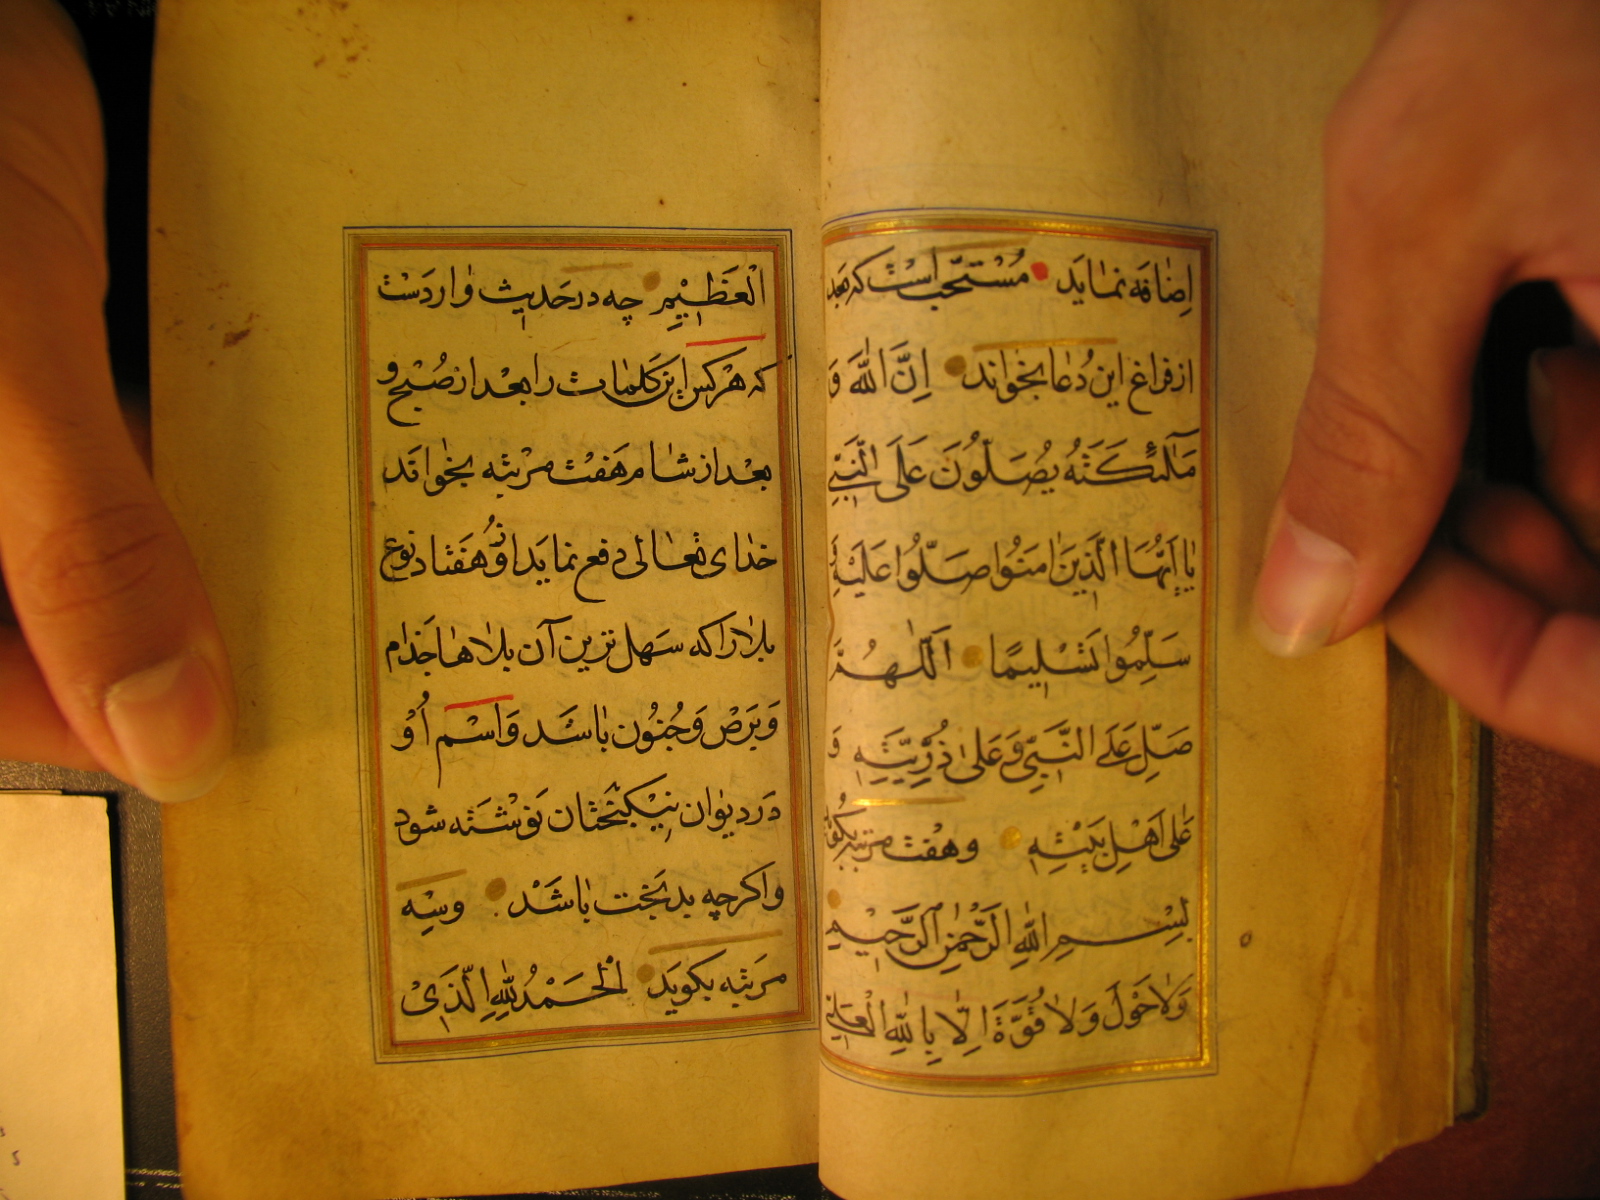 اِضٰافَه نمٰايَد مُسْتَحَبّ اسْت كه بَعد
از فراغ اين دُعٰا بخٰوٰاند اِنَّ اللّٰهَ وَ
مَلٰٓئكَتَهُ يُصَلّوُنَ عَلَى النَّبِيِّ
يٰا اَيُّهَا الَّذينَ اٰمَنوُا صَلّوُا عَلَيْهِ وَ
سَلِّمُوا تَسْليمًا اَللّٰهُمَّ
صَلِّ عَلَى النَّبِيِّ وَعَلىٰ ذُرِّيَّتِهِ وَ
عَلىٰ اَهْلِ بَيْتِهِ وهفت مرتبه بكَويد
بِسْمِ اللّٰهِ الرَّحْمٰنِ الرَّحيمِ
وَلاٰحَوْلَ وَلاٰ قُوَّةَ اِلّٰا بِاللّٰهِ الْعَلِيِّ
الْعَظيمِ چه در حَديث وٰاردَسْت
كه هَركس اين كَلمٰات را بعْد از صُبْح و
بعْد از شام هَفت مرتبه بخٰوٰانَد
خدٰاى تعٰالى دفع نمايَد ازوُ هَفتاد نوع
بلاٰ را كه سَهل ترين آن بلاٰها جَذام
وَبَرَصْ وَجُنوُن بٰاشَد وَاسْم اُوْ
دَر ديوٰان نيكبَختان نَوشْتَه شود
واكرچه بدبَخت بٰاشَدْ وسِه
مَرتبه بكويَد اَلْحَمْدُ لِلّٰهِ الَّذى